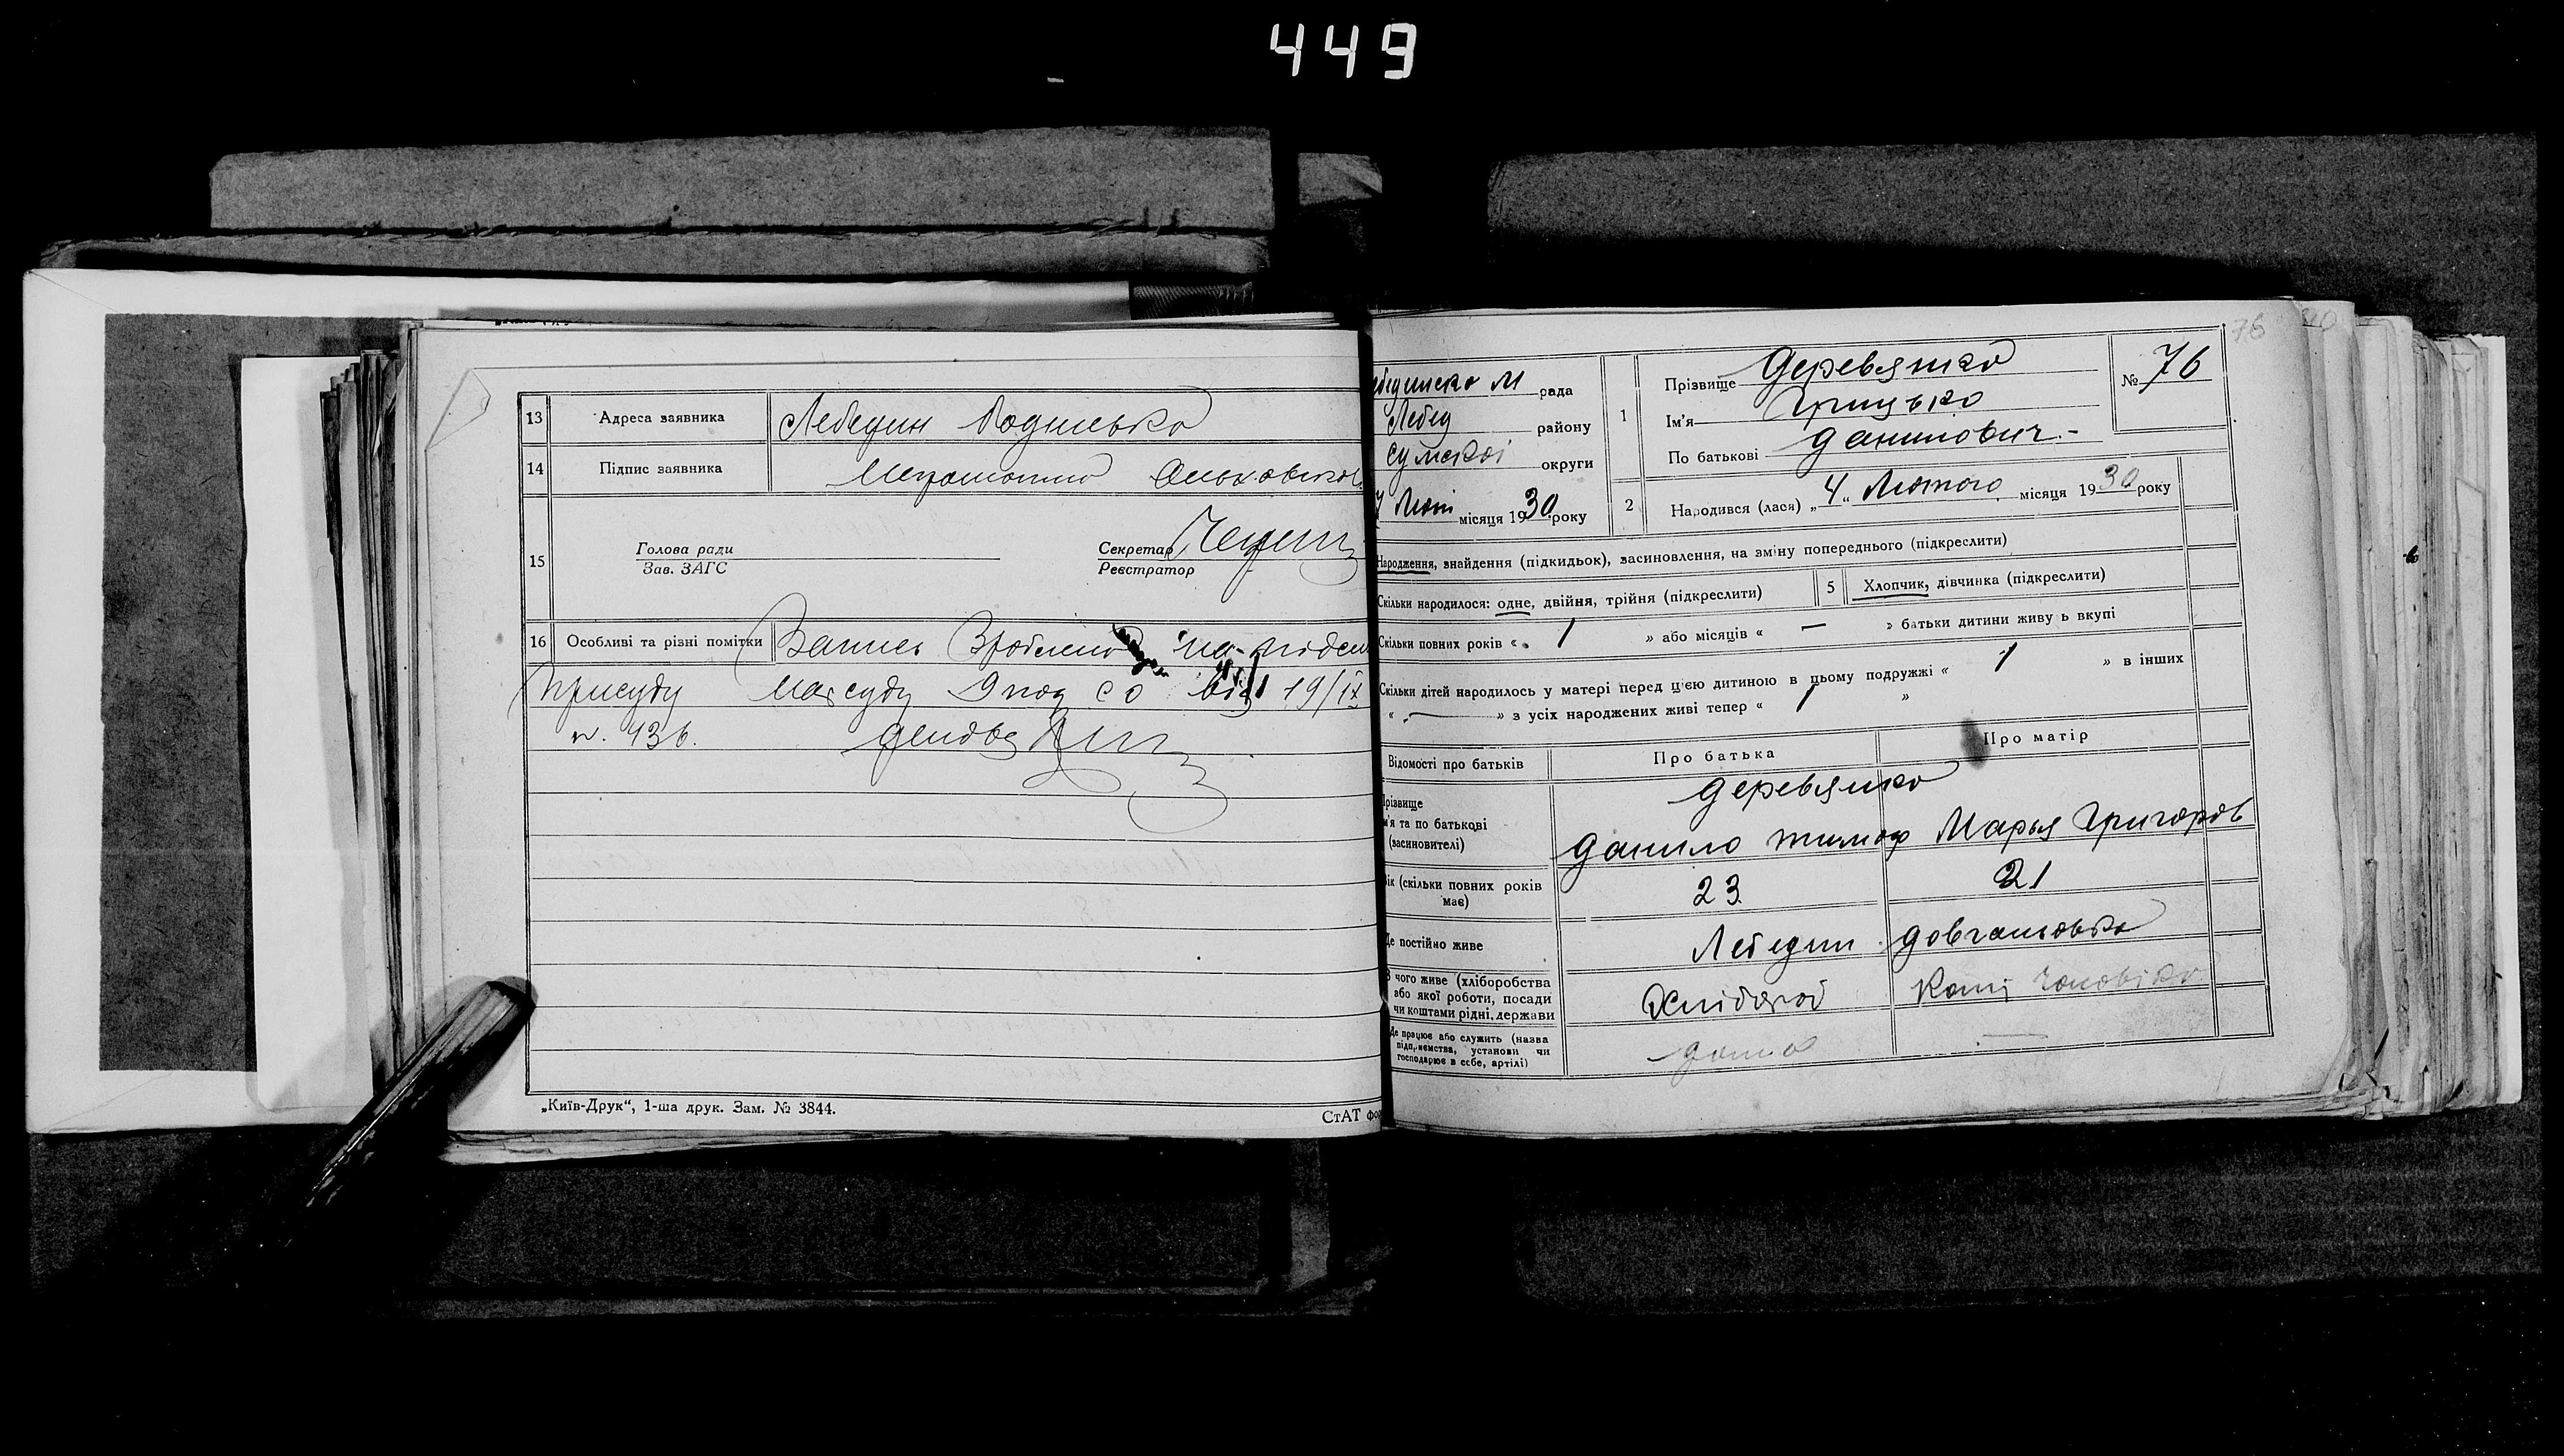 449
13 Адреса заявника Лебедин
14 Підпис заявника
Голова ради
Секретар
15
Зав. ЗАГС
Реєстратор
16 Особливі та різні помітки Запись Зроблено на підст
присуду нарсуду
від 19/IX
„Київ-Друк“, 1-ша друк. Зам. № 3844.
СтАТ фо
76
М рада
Лебед району
Сумської округи
Лют місяця 1930 року
1 Прізвище Деревянко
№ 76
Ім'я Грицько
По батькові Данилович.-
2 Народився (лася) „4“ Лютого місяця 1930 року
Народження, знайдення (підкидьок), засиновлення, на зміну попереднього (підкреслити)
Скільки народилося: одне, двійня, трійня (підкреслити) 5 Хлопчик, дівчинка (підкреслити)
Скільки повних років « 1 » або місяців « — » батьки дитини живуть вкупі
Скільки дітей народилось у матері перед цією дитиною в цьому подружжі « 1 » в інших
« — » з усіх народжених живі тепер « 1 »
Відомості про батьків Про батька Про матір
Прізвище
ім'я та по батькові
(засиновителі)
Деревянко
Данило Тимоф Марья Григоров
Вік (скільки повних років має) 23 21
Де постійно живе Лебедин
З чого живе (хліборобства
або якої роботи, посади
чи коштами рідні, держави
Хлібороб Кошт чоловіка
Де працює або служить (назва
підприємства, установи чи
господарює в себе, артілі)
дома —